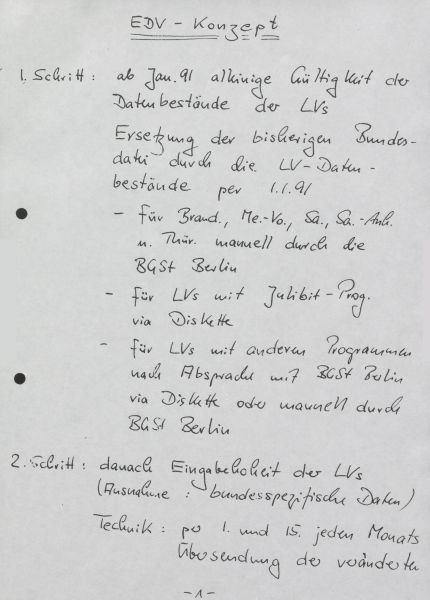 EDV - Konzept
1. Schritt: ab Jan. 91 alleinige Gültigkeit der
Datenbestände der LVs
Ersetzung der bisherigen Bundes-
datei durch die LV-Daten-
bestände per 1.1.91
- für Brand., Me.-Vo., Sa., Sa.-Anh.
u. Thür. manuell durch die
BGSt Berlin
- für LVs mit Julibit-Prog.
via Diskette
- für LVs mit anderen Programmen
nach Absprache mit BGSt Berlin
via Diskette oder manuell durch
BGSt Berlin
2. Schritt: danach Eingabehoheit der LVs
(Ausnahme: bundesspezifische Daten)
Technik: per 1. und 15. jeden Monats
Übersendung der veränderten
-1-